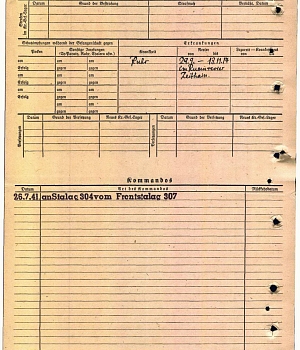 Datum Grund der Bestrafung Strafmaß Verbüßt, Datum
Schutzimpfungen während der Gefangenschaft gegen Erkrankungen
Pocken Sonstige Impfungen (Ty. Paraty. Ruhr, Cholera usw.) Krankheit Revier von bis Lazarett — Krankenhaus von bis
am am am Ruhr 29.9. – 13.11.
Erfolg gegen gegen
am am am Zeithain.
Erfolg gegen gegen
am am am
Erfolg gegen gegen
am am am
Erfolg gegen gegen
Datum Grund der Versetzung Neues Kr.-Gef.-Lager Datum Grund der Versetzung Neues Kr.-Gef.-Lager
Kommandos
Datum Art des Kommandos Rückkehrdatum
26.7.41 an Stalag 304 vom Frontstalag 307